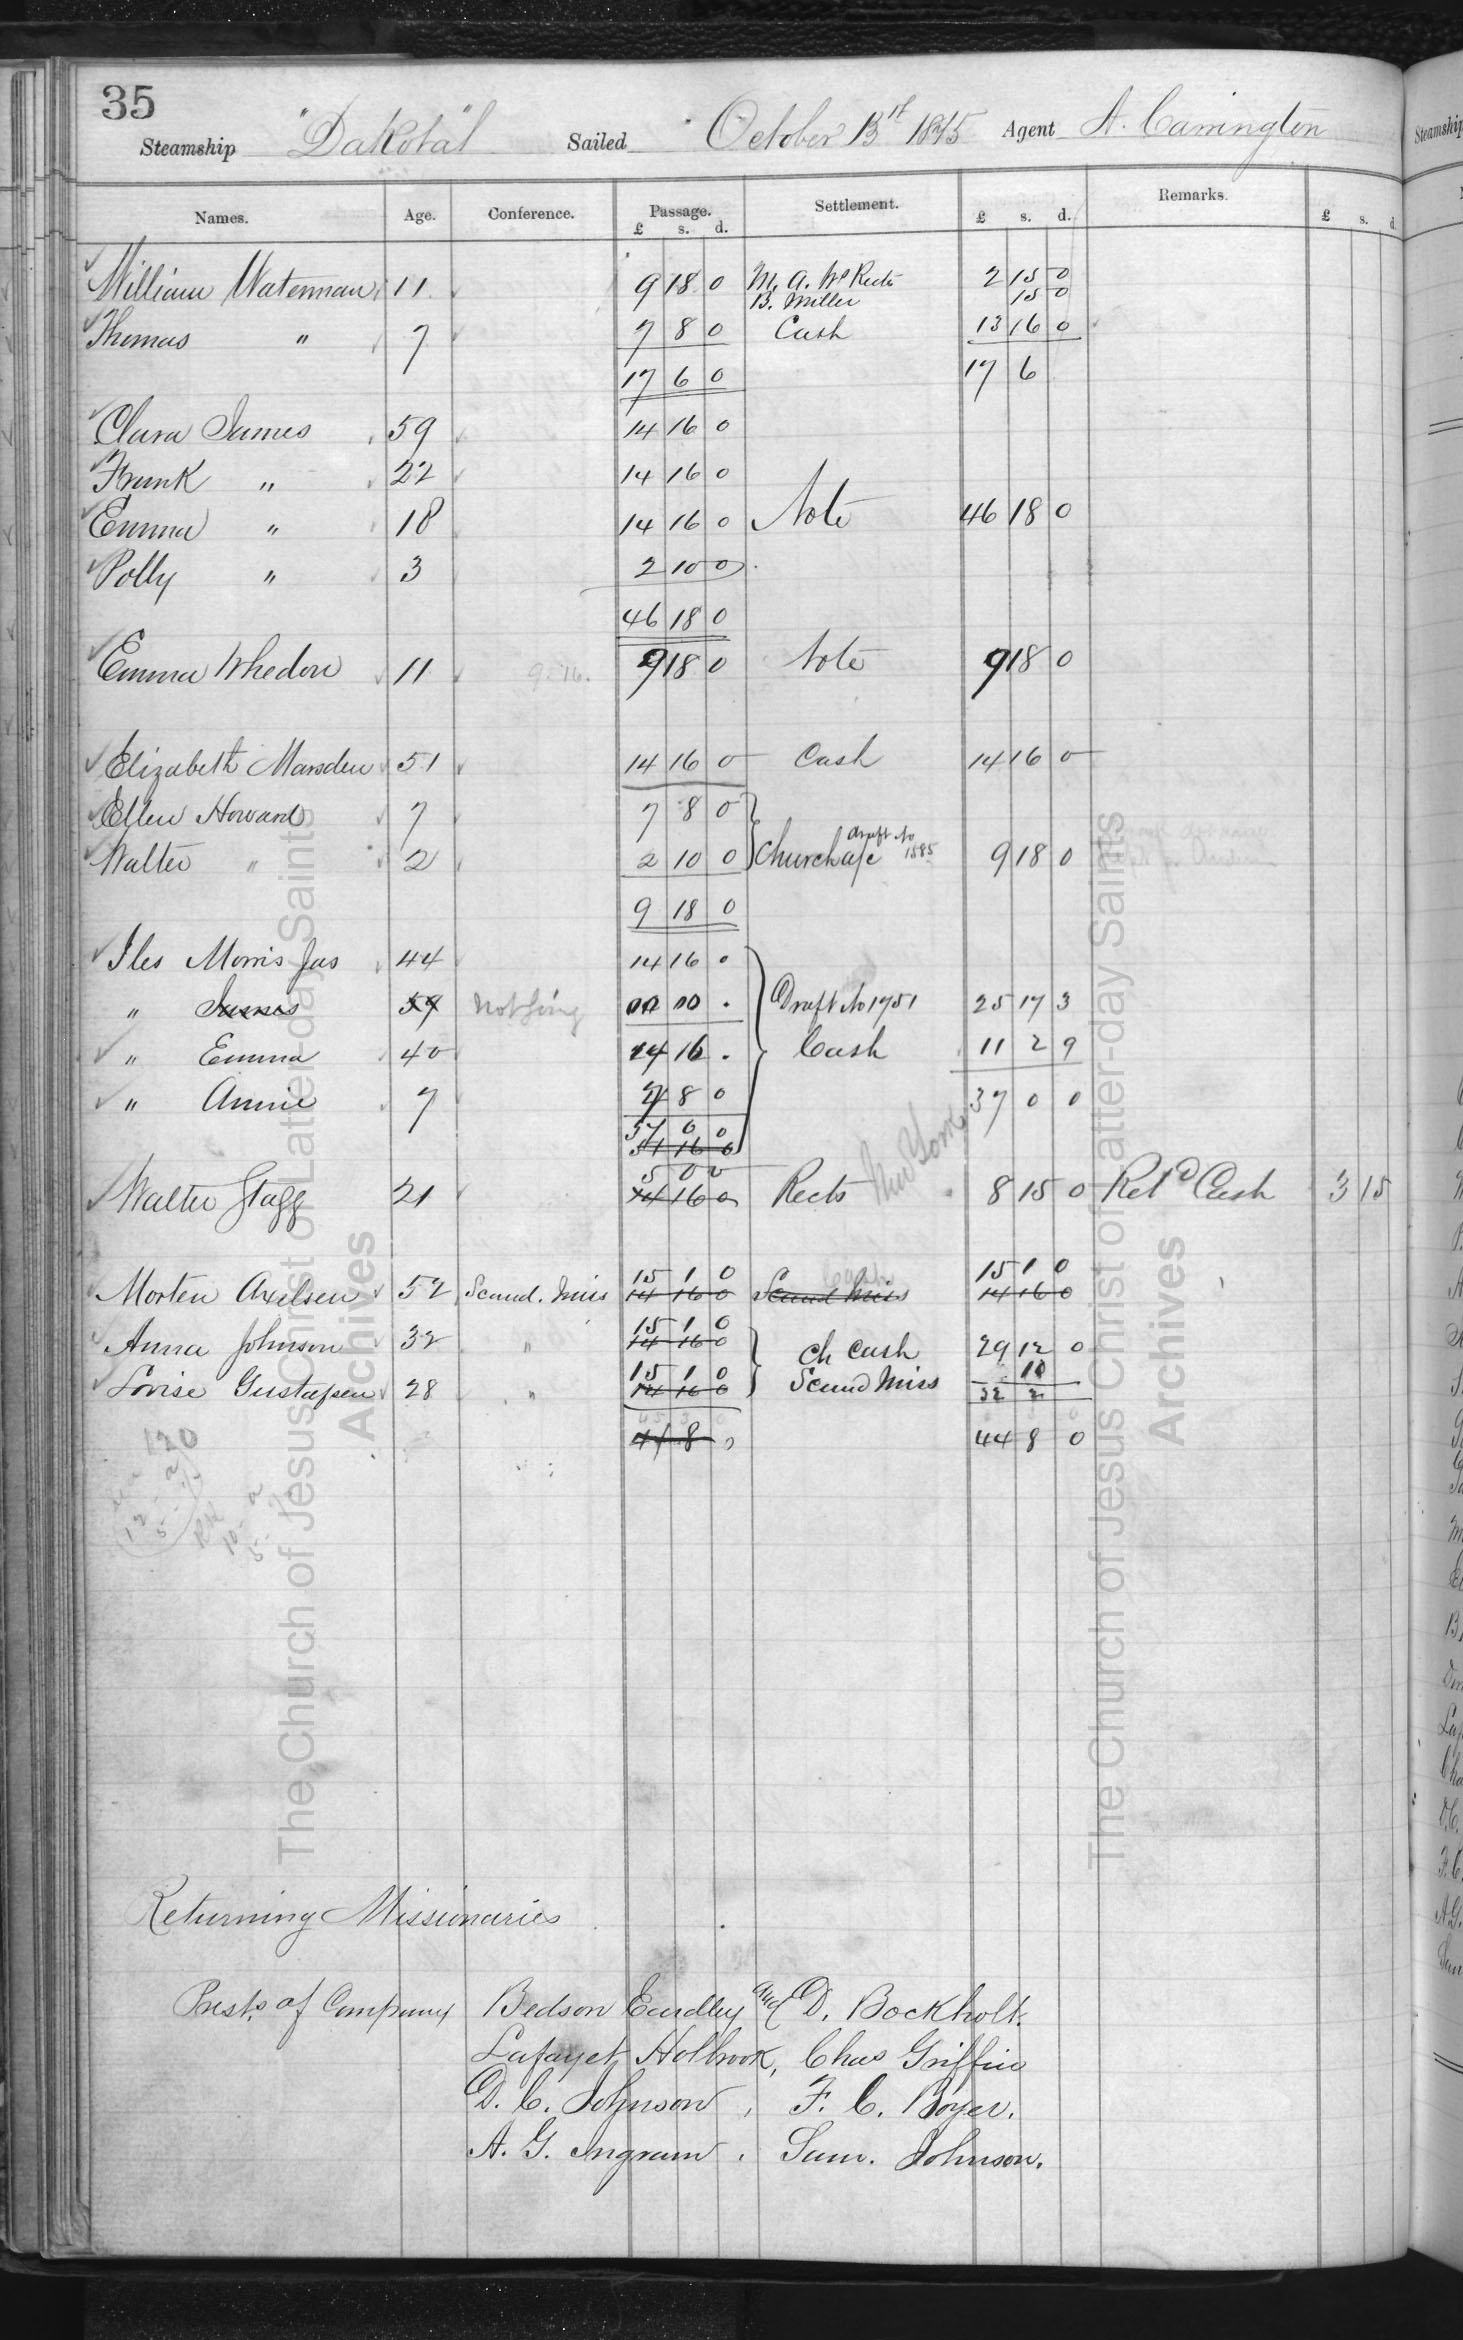 35
Steamship "Dakota" Sailed October 13th 1875 Agent A. Carrington
Names. Age. Conference. Passage. £ s. d. Settlement. £ s. d. Remarks. £ s. d.
William Waterman 11 9 18 0 M. A. Ws Rects 2 15 0
B. Miller 15 0
Thomas " 7 7 8 0 Cash 13 16 0
17 6 0 17 6
Clara James 59 14 16 0
Frank " 22 14 16 0
Emma " 18 14 16 0 Note 46 18 0
Polly " 3 2 10 0
46 18 0
Emma Whedon 11 9.16. 9 18 0 Note 9 18 0
Elizabeth Marsden 51 14 16 0 Cash 14 16 0
Ellen Howard 7 7 8 0
Walter " 2 2 10 0 Church a/c draft No 1585 9 18 0
9 18 0
Iles Morris Jas 44 14 16 0
" James 59 nothing 00 00 . Draft No 1751 25 17 3
" Emma 40 14 16 . Cash 11 2 9
" Annie 7 7 8 0 37 0 0
37 0 0
51 16 0
5 0 0
Walter Stagg 21 14 16 0 Rects New York 8 15 0 Retd Cash 3 15
15 1 0 Cash 15 1 0
Morten Axelsen 52 Scand. Miss 14 16 0 Scand Miss 14 16 0
15 1 0
Anna Johnson 32 " 14 16 0 Ch Cash 29 12 0
15 1 0 10
Lovise Gustafsen 28 " 14 16 0 Scand Miss 32 2
45 3 0
44 8 0 44 8 0
120
Returning Missionaries
Prests of Company Bedson Eardley and D. Bockholt.
Lafayet Holbrook, Chas Griffin
D. C. Johnson, F. C. Boyer.
A. G. Ingram, Sam. Johnson.
The Church of Jesus Christ of Latter-day Saints
Archives
The Church of Jesus Christ of Latter-day Saints
Archives
Steamship